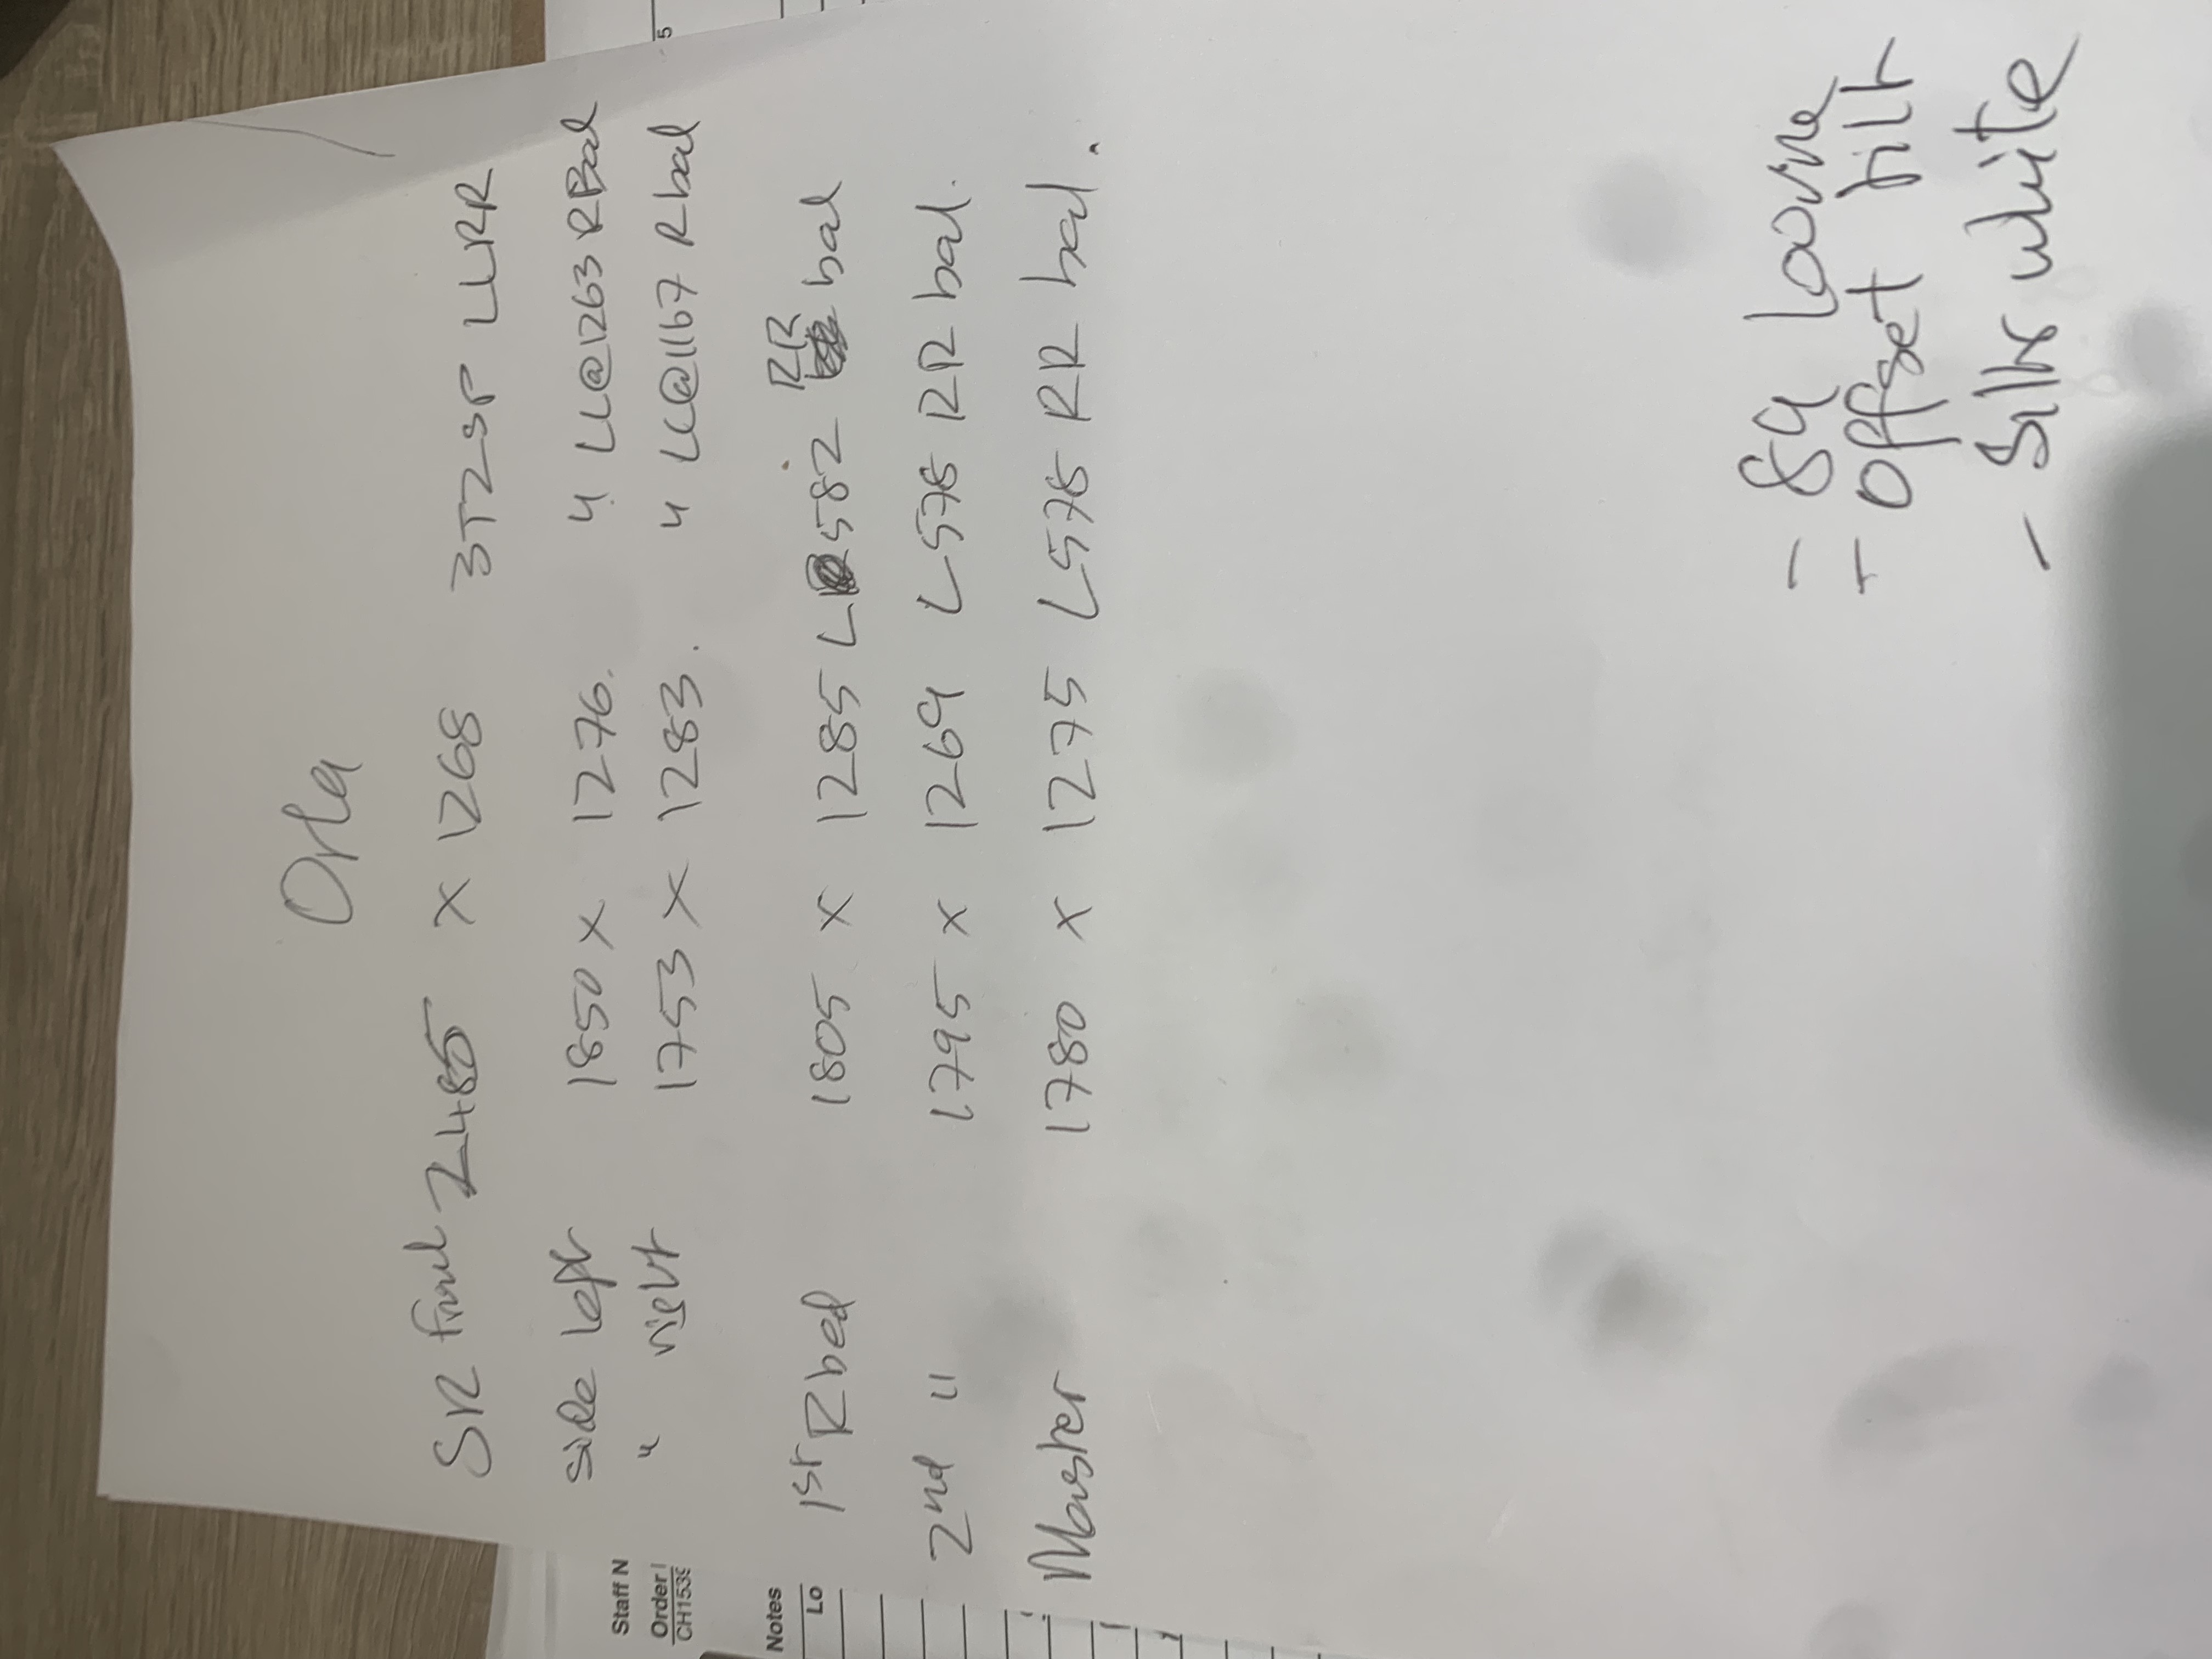 Orla
SR front 2485 x 1268 3T2SP LLRR
side left 1850 x 1276. 4 LL@1263 RBal
" right 1753 x 1283. 4 LL@1167 Rbal
1st R bed 1805 x 1285 L 582 RR bal
2nd " 1795 x 1269 L 578 RR bal.
Master 1780 x 1275 L 578 RR bal.
- 89 louvre
- offset tilt
- Silk white
Staff N
Order
CH1539
Notes
Lo
5